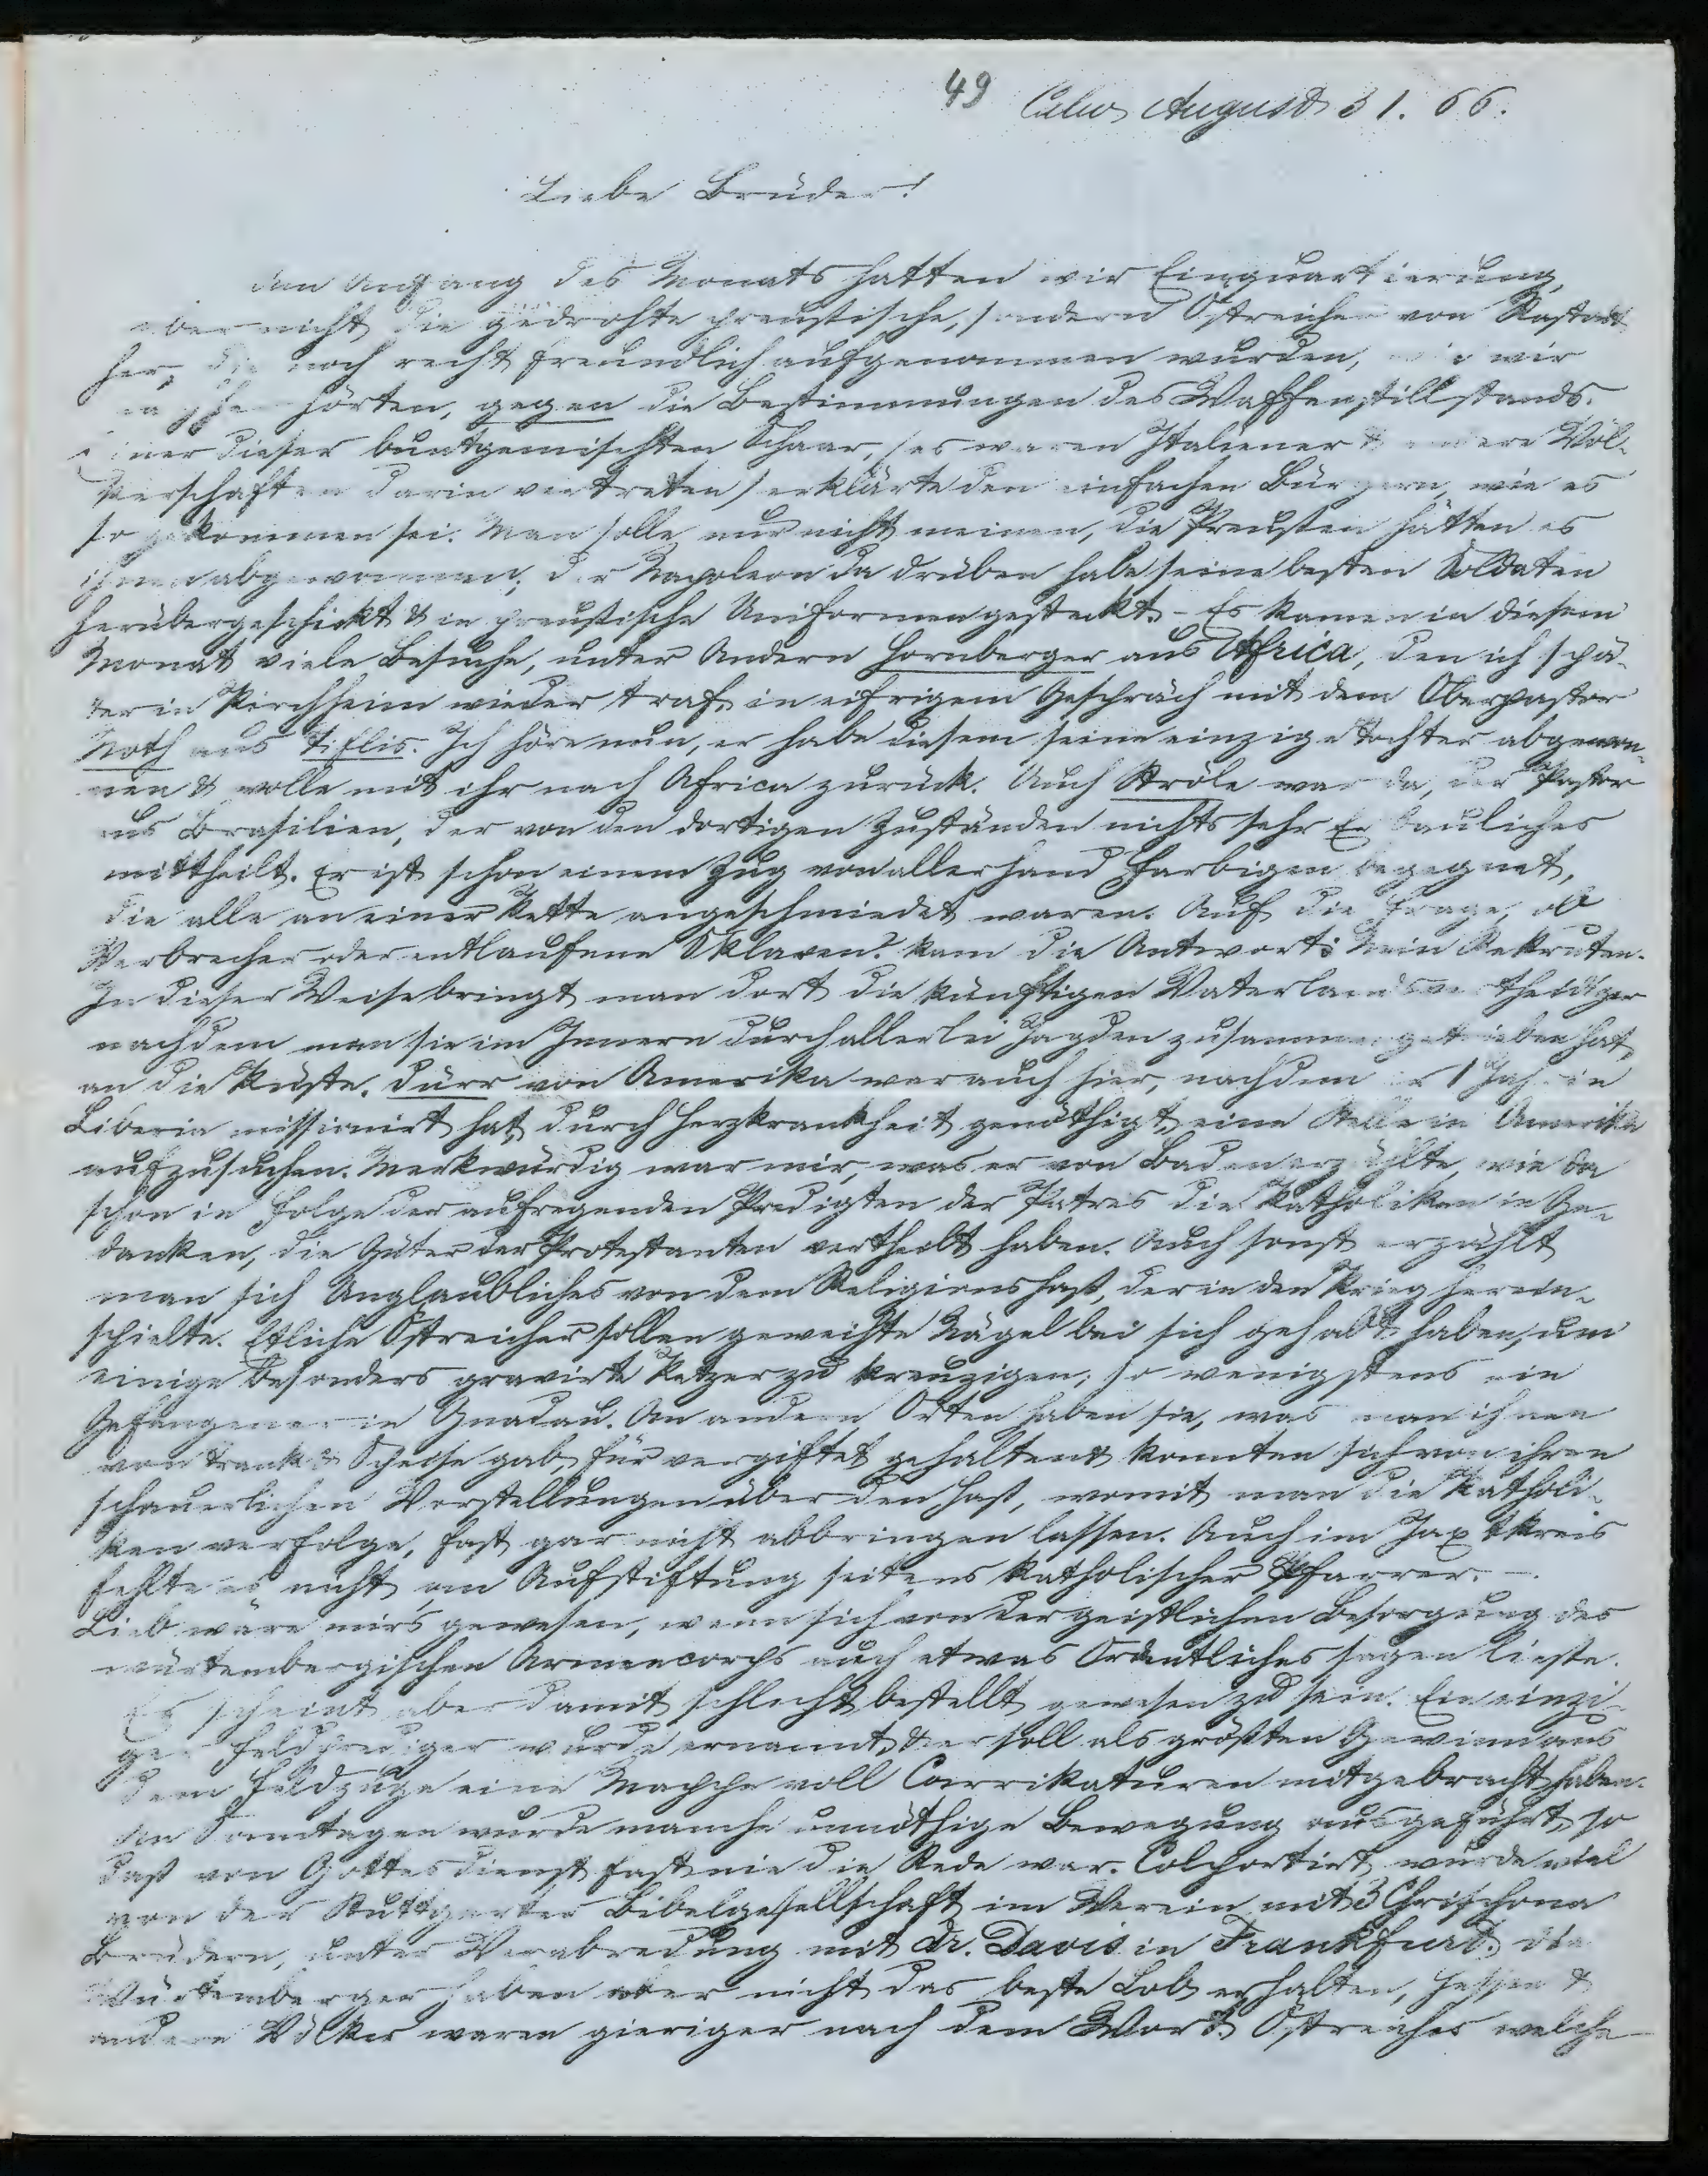 49 Calw August 31. 66.
Liebe Brüder!
den Anfang des Monats hatten wir Einquartierung,
aber nicht die gedrohte preußische, sondern Östreicher von Rastatt
her, die noch recht freundlich aufgenommen wurden, wie wir
nachher hörten, gegen die Bestimmungen des Waffenstillstands.
Einer dieser buntgemischten Schaar, (es waren Italiener & andere Völ-
kerschaften darin vertreten) erklärte den einfachen Bürgern, wie es
so gekommen sei. Man solle nur nicht meinen, die Preußen hätten es
ihnen abgewonnen; der Napoleon da drüben habe seine besten Soldaten
herübergeschickt & in preußische Uniformen gesteckt. - Es kamen in diesem
Monat viele Besuche, unter Andern Hornberger aus Africa, den ich spä-
ter in Kirchheim wieder traf, in eifrigem Gespräch mit dem Oberpastor
Roth aus Tiflis. Ich höre nun, er habe diesem seine einzige Tochter abgewon-
nen & wolle mit ihr nach Africa zurück. Auch Ströle war da, der Pastor
aus Brasilien, der von den dortigen Zuständen nichts sehr Erbauliches
mittheilt. Er ist schon einem Zug von allerhand Farbigen begegnet,
die alle an einer Kette angeschmiedet waren. Auf die Frage, ob
Verbrecher oder entlaufene Sklaven? kam die Antwort: Nein Rekruten.
In dieser Weise bringt man dort die künftigen Vaterlandsvertheidiger
nachdem man sie im Innern durch allerlei Jagden zusammengetrieben hat,
an die Küste. Dürr von Amerika war auch hier, nachdem er 1 Jahr in
Liberia missionirt hat, durch Herzkrankheit genöthigt, eine Stelle in Amerika
aufzusuchen. Merkwürdig war mir, was er von Baden erzählte, wie da
schon in Folge der aufregenden Predigten der Patres die Katholiken in Ge-
danken, die Güter der Protestanten vertheilt haben. Auch sonst erzählt
man sich Unglaubliches von dem Religionshaß, der in den Krieg herein-
schielte. Etliche Östreicher sollen geweihte Nägel bei sich gehabt haben, um
einige besonders gravirte Ketzer zu kreuzigen; so wenigstens ein
Gefangener in Gnadau. An andern Orten haben sie, was man ihnen
von Trank & Speise gab, für vergiftet gehalten & konnten sich von ihren
schauerlichen Vorstellungen über den Haß, womit man die Katholi-
ken verfolge, fast gar nicht abbringen lassen. Auch im Jaxtkreis
fehlte es nicht an Aufstiftung seitens katholischer Pfarrer. -
Lieb wäre mirs gewesen, wenn sich von der geistlichen Besorgung des
würtembergischen Armeecorps auch etwas Ordentliches sagen ließe.
Es scheint aber damit schlecht bestellt gewesen zu sein. Ein einzi-
ger Feldprediger wurde ernannt, & er soll als größten Gewinn aus
dem Feldzuge eine Mappe voll Carrikaturen mitgebracht haben.
An Sonntagen wurde manche unnöthige Bewegung ausgeführt, so
daß von Gottesdienst fast nie die Rede war. Colportirt wurde viel
von der Stuttgarter Bibelgesellschaft im Verein mit 3 Chrischona
Brüdern, unter Verabredung mit Dr. Davis in Frankfurt. Die
Würtemberger haben aber nicht das beste Lob erhalten, Hessen &
andere Völker waren gieriger nach dem Wort. Östreicher welche